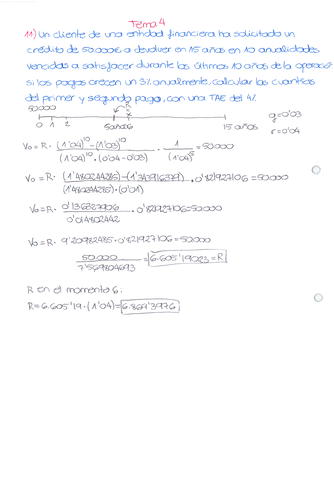 Tema 4
11) Un cliente de una entidad financiera ha solicitado un
crédito de 50.000€ a devolver en 15 años en 10 anualidades
vencidas a satisfacer durante los últimos 10 años de la operación
si los pagos crecen un 3% anualmente, calcular las cuantías
del primer y segundo pago, con una TAE del 4%
50.000
R
0 1 2 5 6 15 años
q=0'03
r=0'04
V₀ = R · (1'04)^10 - (1'03)^10 / (1'04)^10 · (0'04-0'03) · 1 / (1'04)^5 = 50.000
V₀ = R · (1'480244285) - (1'343916379) / (1'480244285) · (0'01) · 0'821927106 = 50.000
V₀ = R · 0'136327906 / 0'014802442 · 0'821927106 = 50.000
V₀ = R · 9'20982485 · 0'821927106 = 50.000
50.000 / 7'569804693 = 6.605'19023 = R
R en el momento 6:
R = 6.605'19 · (1'04) = 6.869'3976